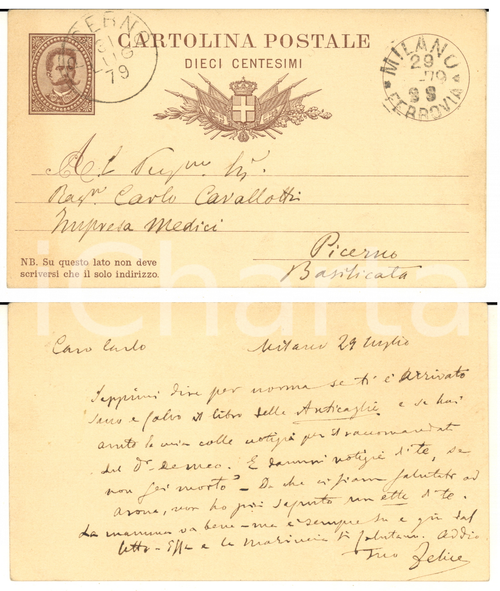 CARTOLINA POSTALE
DIECI CENTESIMI
PICERNO
31
LUG
79
MILANO
29
79
FERROVIA
Al
Rag.re Carlo Cavallotti
Impresa Medici
Picerno
Basilicata
NB. Su questo lato non deve
scriversi che il solo indirizzo.
iCharta
Caro Carlo
Milano 29 luglio
Sappimi dire per norma se ti è arrivato
sano e salvo il libro delle Anticaglie e se hai
avuto la mia colle notizie per il raccomandat
del Dr. De Meo. E dammi notizie di te, se
non sei morto - Da che ci siam salutati ad
Arona, non ho più saputo un ette di te.
La mamma va bene - ma è sempre su e giù dal
letto - Essa e la ti salutano. Addio
Tuo Felice